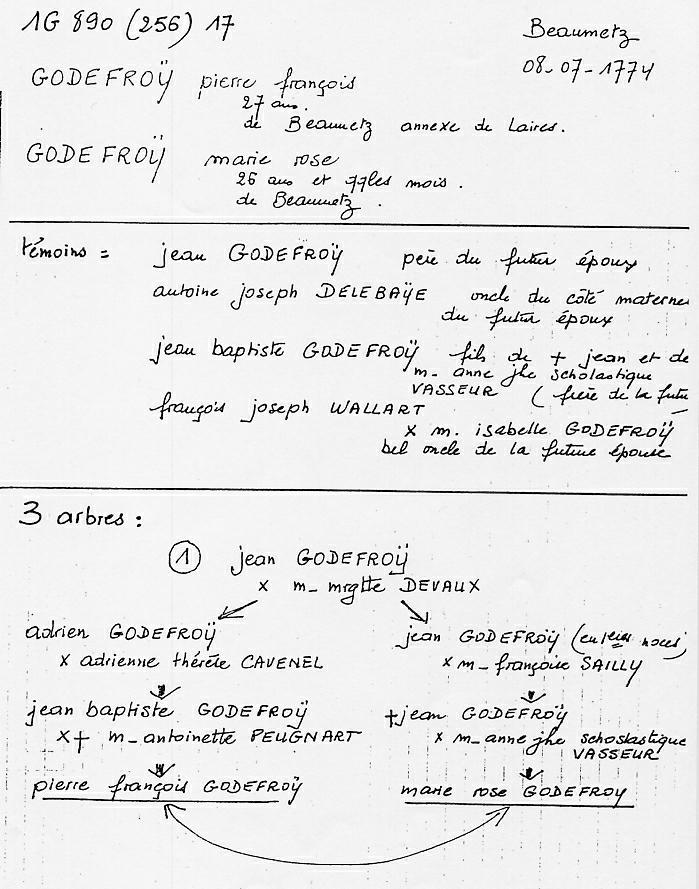 1G 890 (256) 17
Beaumetz
08-07-1774
GODEFROŸ pierre françois
27 ans.
de Beaumetz annexe de Laires.
GODEFROŸ marie rose
26 ans et qqles mois.
de Beaumetz.
témoins = jean GODEFROŸ père du futur époux
antoine joseph DELEBAŸE oncle du côté maternel
du futur époux
jean baptiste GODEFROŸ fils de + jean et de
m- anne jhe scholastique
VASSEUR (frère de la futu
françois joseph WALLART
x m. isabelle GODEFROŸ
bel oncle de la future épouse
3 arbres :
1 jean GODEFROŸ
x m- mrgtte DEVAUX
adrien GODEFROŸ
x adrienne thérèse CAVENEL
jean GODEFROŸ (en 1eres noces)
x m- françoise SAILLY
jean baptiste GODEFROŸ
x+ m-antoinette PEUGNART
+jean GODEFROŸ
x m-anne jhe schoslastique
VASSEUR
pierre françois GODEFROŸ
marie rose GODEFROY